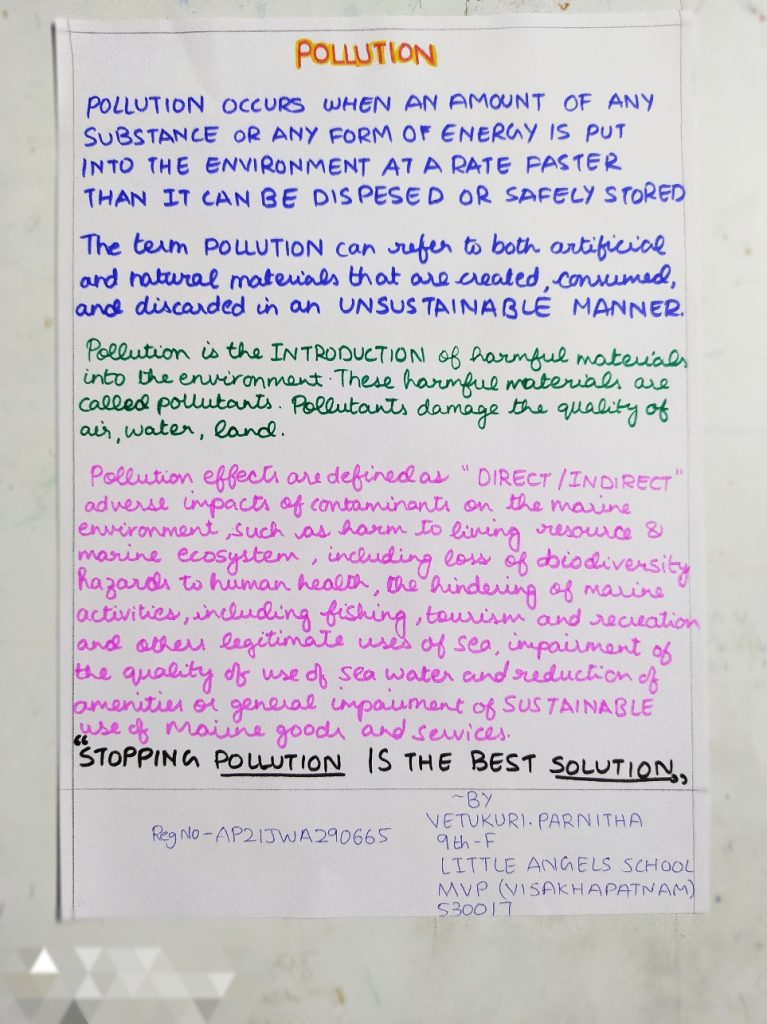 POLLUTION
POLLUTION OCCURS WHEN AN AMOUNT OF ANY
SUBSTANCE OR ANY FORM OF ENERGY IS PUT
INTO THE ENVIRONMENT AT A RATE FASTER
THAN IT CAN BE DISPESED OR SAFELY STORED
The term POLLUTION can refer to both artificial
and natural materials that are created, consumed,
and discarded in an UNSUSTAINABLE MANNER.
Pollution is the INTRODUCTION of harmful materials
into the environment. These harmful materials are
called pollutants. Pollutants damage the quality of
air, water, land.
Pollution effects are defined as "DIRECT/INDIRECT"
adverse impacts of contaminants on the marine
environment, such as harm to living resource &
marine ecosystem, including loss of biodiversity
hazards to human health, the hindering of marine
activities, including fishing, tourism and recreation
and others legitimate uses of sea, impairment of
the quality of use of sea water and reduction of
amenities or general impairment of SUSTAINABLE
use of Marine goods and services.
"STOPPING POLLUTION IS THE BEST SOLUTION,,
~BY
Reg No - AP21JWA290665
VETUKURI. PARNITHA
9th-F
LITTLE ANGELS SCHOOL
MVP (VISAKHAPATNAM)
530017